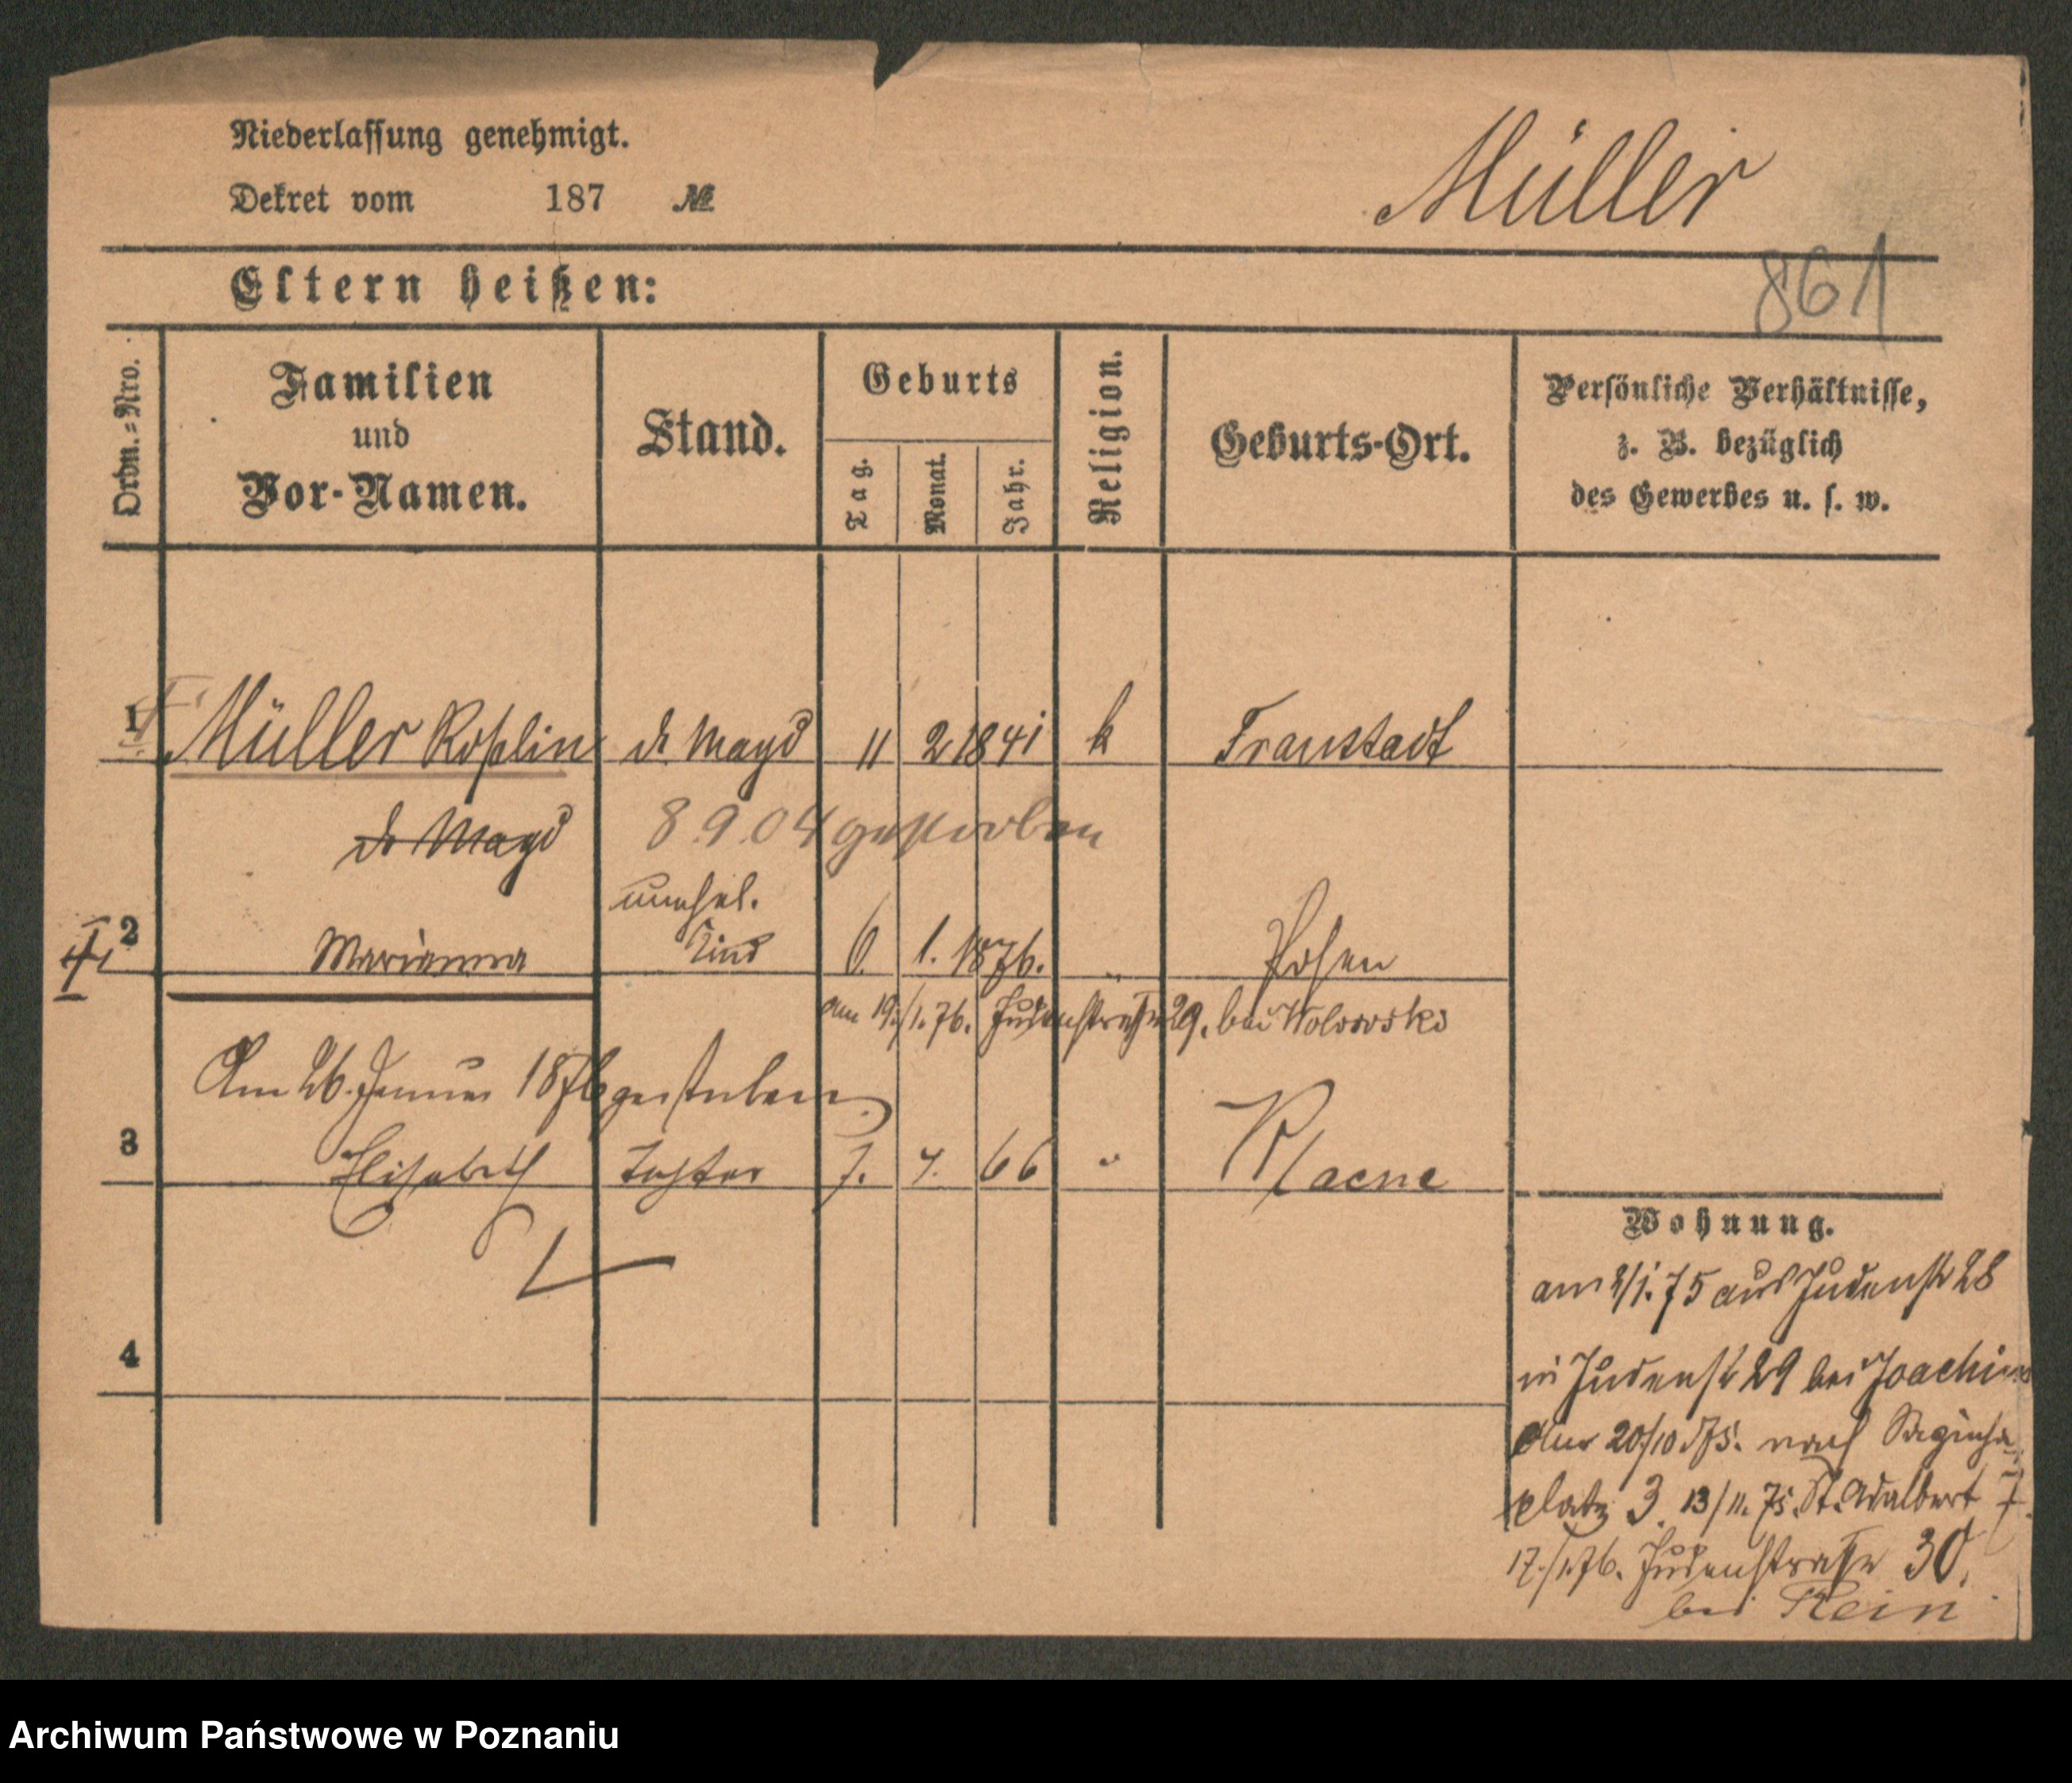 Niederlassung genehmigt.
Dekret vom 187 №
Müller
861
Eltern heißen:
Ordn.=Nro.
Familien
und
Vor-Namen.
Stand.
Geburts
Tag.
Monat.
Jahr.
Religion.
Geburts-Ort.
Persönliche Verhältnisse,
z. B. bezüglich
des Gewerbes u. s. w.
1 Müller Roslin d. Magd 11 2 1841 k Fraustadt
d. Magd 8.9.04 gestorben
unehel.
2 Marianna Kind 6. 1. 1876. " Posen
am 19./1.76. Judenstraße 29. bei Wolowski
Am 26. Januar 1876 gestorben.
3 Elisabeth Tochter 7. 4. 66 "
4
Wohnung.
am 2/1.75 aus Judenstr 28
in Judenstr 29 bei Joachim
20/10 75. nach
platz 3. 13/11. 75. St. Adalbert 7.
17./1.76. Judenstraße 30.
bei Rein
Archiwum Państwowe w Poznaniu